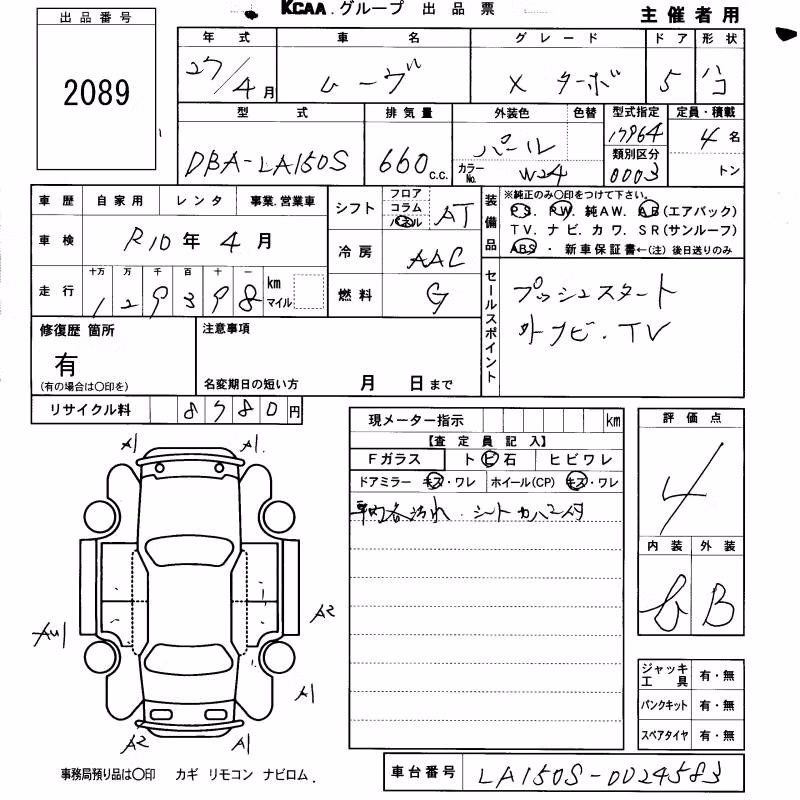 KCAA.グループ 出品票
主催者用
出品番号
2089
年式 車名 グレード ドア 形状
27/4月 ムーヴ X ターボ 5 ハコ
型式 排気量 外装色 色替 型式指定 定員・積載
DBA-LA150S 660c.c. パール 17964 4名
カラーNo. W24 類別区分 0003 トン
車歴 自家用 レンタ 事業.営業車
車検 R10年4月
走行 十万 万 千 百 十 一 km マイル
129398
シフト フロア コラム パネル AT
冷房 AAC
燃料 G
装備品 ※純正のみ〇印をつけて下さい。
PS. PW. 純AW. AB(エアバック)
TV. ナビ. カワ. SR(サンルーフ)
ABS・新車保証書←(注)後日送りのみ
セールスポイント
プッシュスタート
外ナビ.TV
修復歴 箇所
有
(有の場合は〇印を)
注意事項
名変期日の短い方 月 日まで
リサイクル料 8780円
現メーター指示 km
【査定員記入】
Fガラス トビ石 ヒビワレ
ドアミラー キズ・ワレ ホイール(CP) キズ・ワレ
車内各汚れ.シートカバー付
評価点
4
内装 外装
B
A1 A1
A2
A1
A2 A1
ジャッキ工具 有・無
パンクキット 有・無
スペアタイヤ 有・無
事務局預り品は〇印 カギ リモコン ナビロム.
車台番号 LA150S-0024583